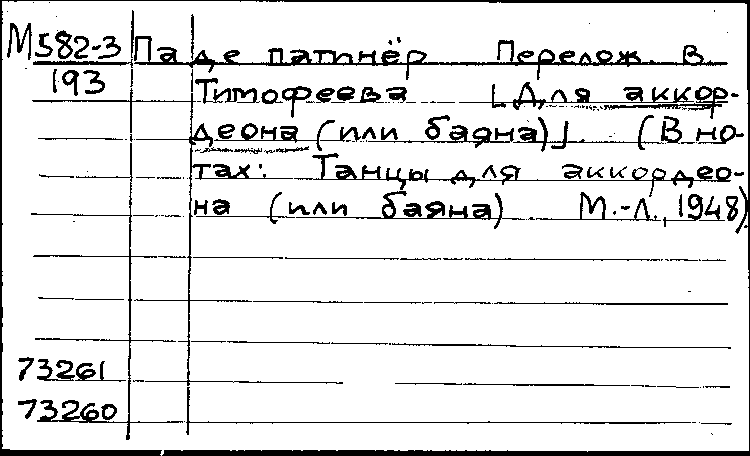 М582-3 Па де патинёр Перелож. В.
193 Тимофеева [Для аккор-
деона (или баяна)]. (В но-
тах: Танцы для аккордео-
на (или баяна) М.-Л., 1948)
73261
73260